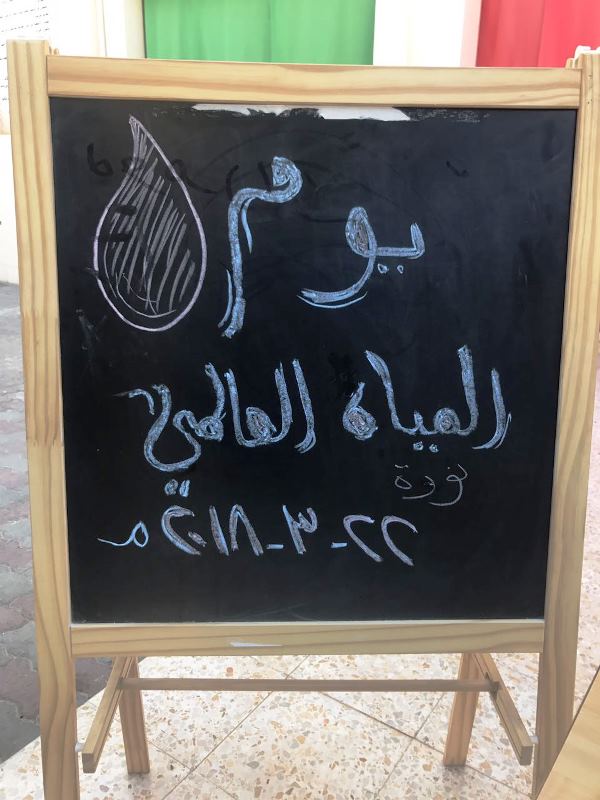 يوم
المياه العالمي
٢٢ - ٣ - ٢٠١٨ م